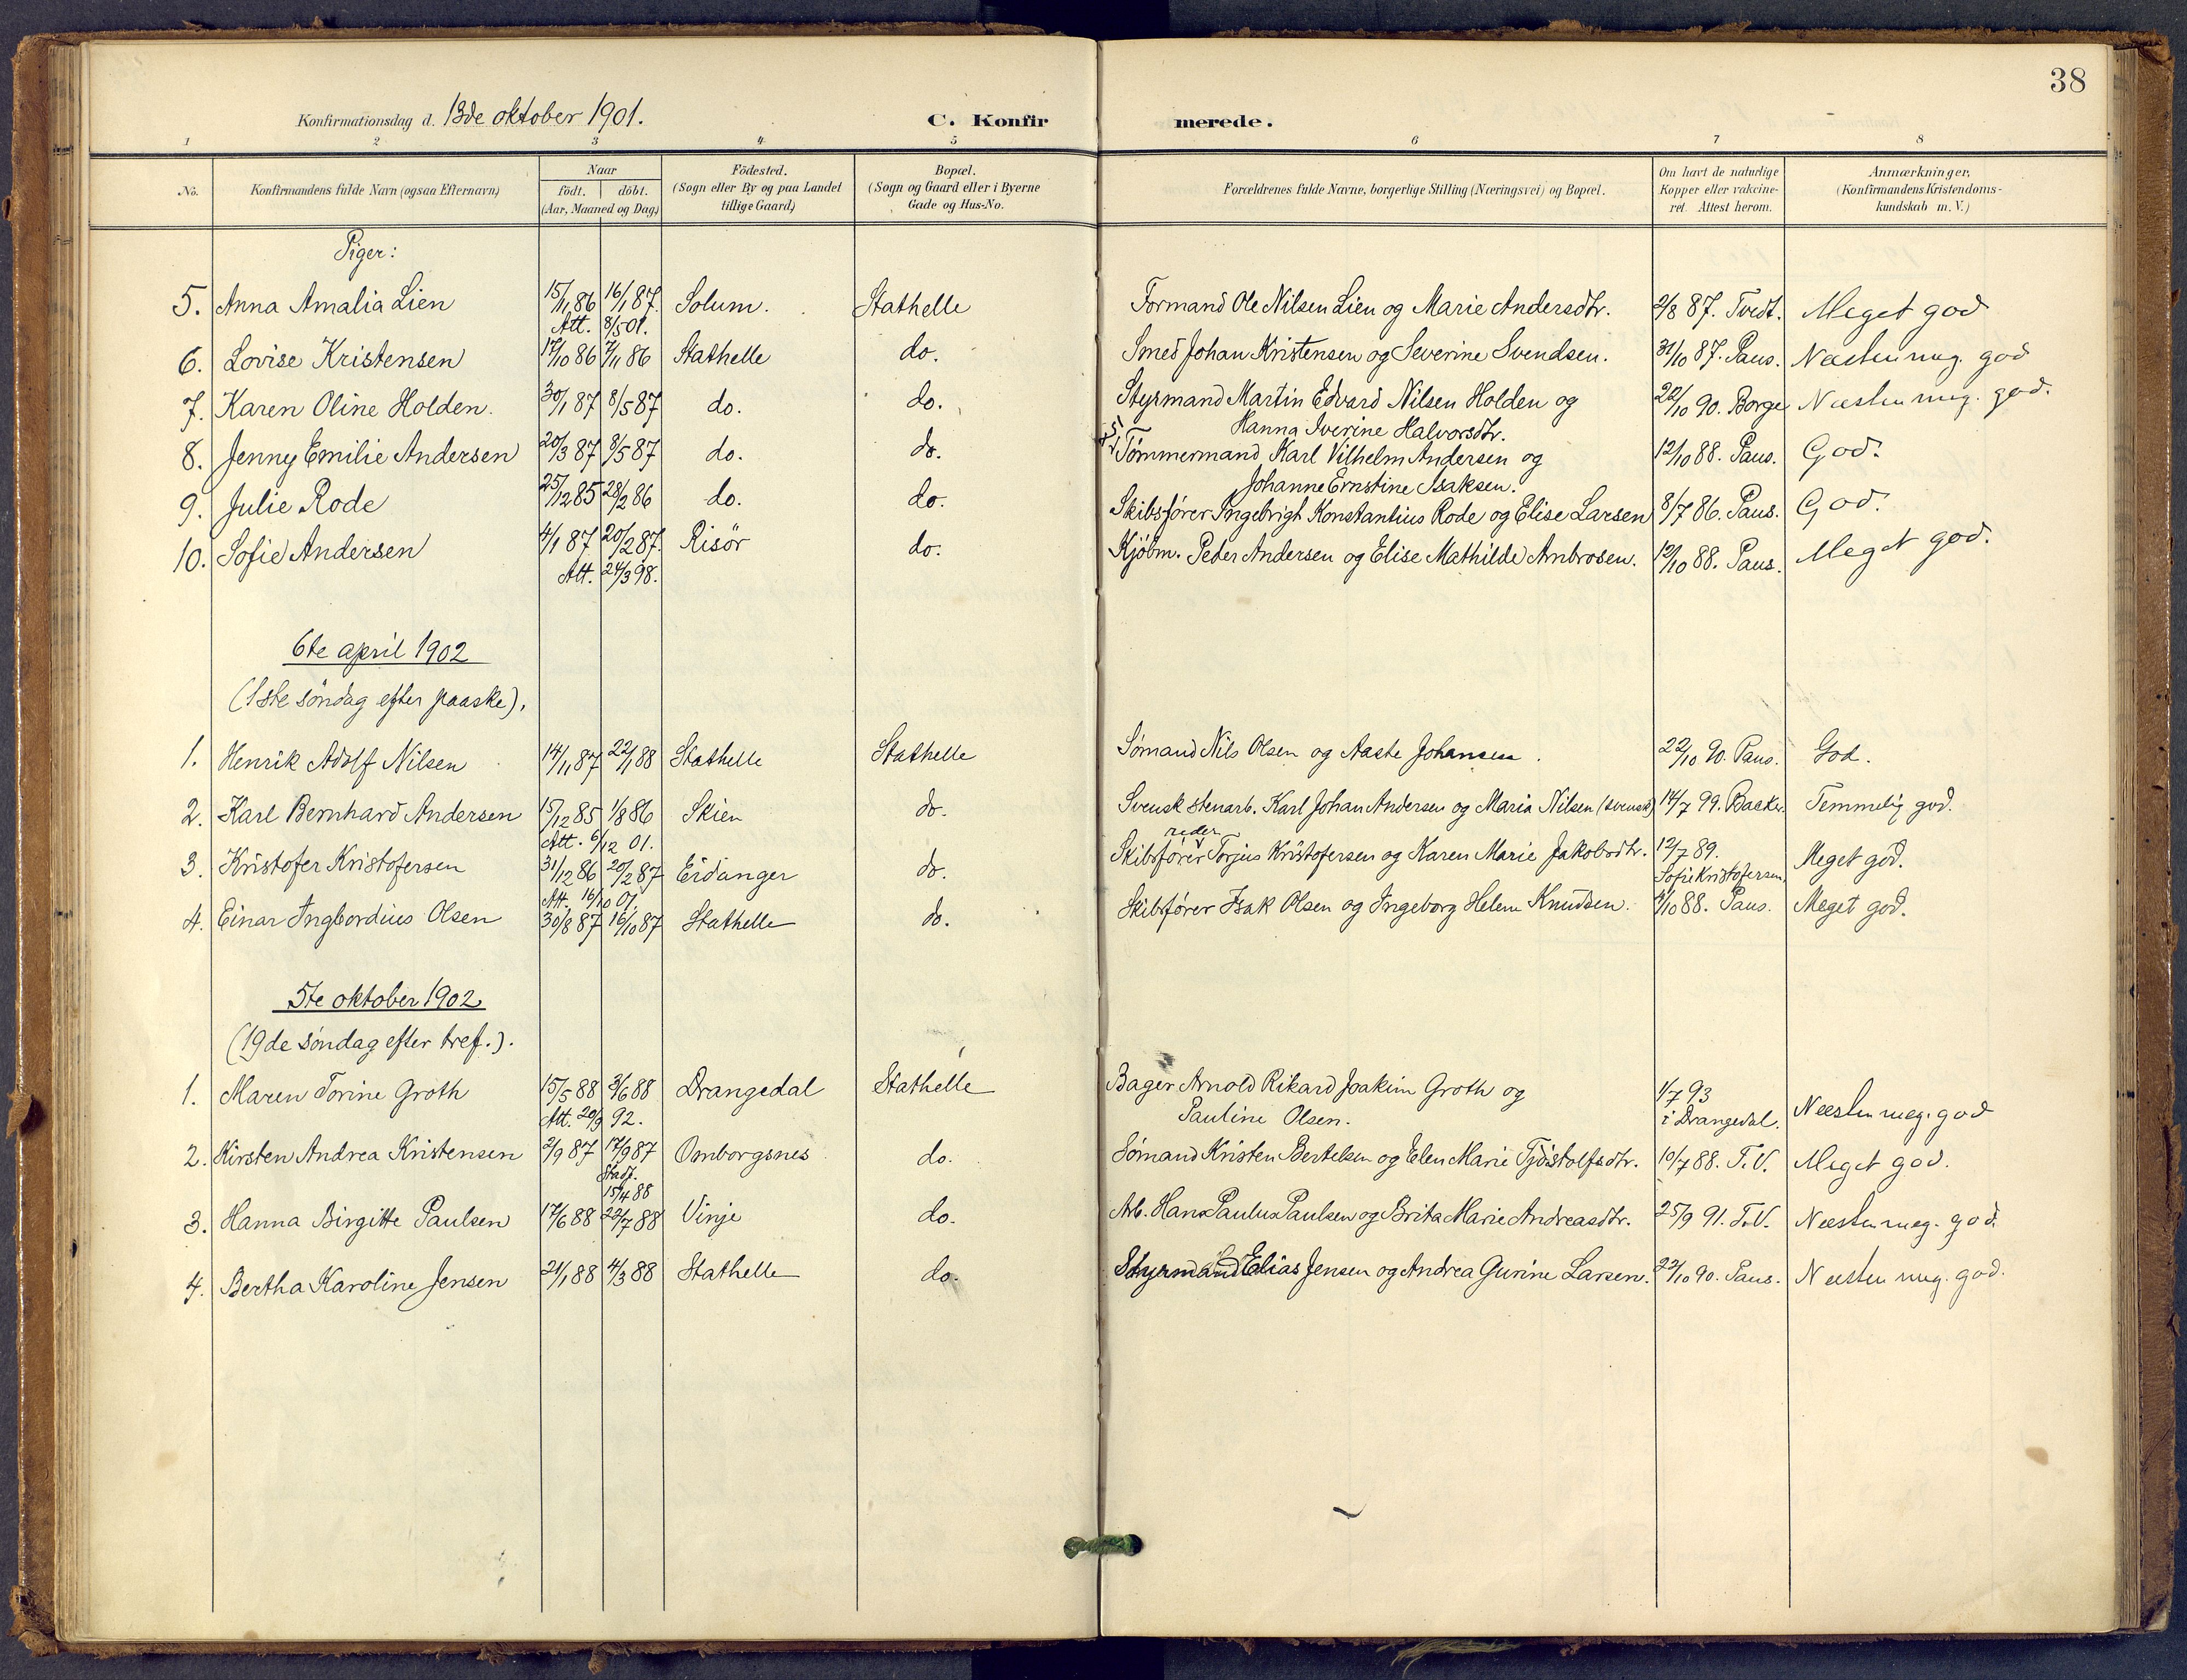 38
Konfirmationsdag d. 13de oktober 1901. C. Konfir merede.
1 2 3 4 5 6 7 8
No. Konfirmandens fulde Navn (ogsaa Efternavn) Naar födt. döbt. (Aar, Maaned og Dag) Födested. (Sogn eller By og paa Landet tillige Gaard) Bopæl. (Sogn og Gaard eller i Byerne Gade og Hus-No. Forældrenes fulde Navne, borgerlige Stilling (Næringsvei) og Bopæl. Om havt de naturlige Kopper eller vakcineret. Attest herom. Anmærkninger, (Konfirmandens Kristendomskundskab m. V.)
Piger:
5. Anna Amalia Lien 15/11 86 16/1 87. Solum. Stathelle Formand Ole Nilsen Lien og Marie Andersdtr. 2/8 87. Tvedt. Meget god
Att. 8/5 01.
6. Lovise Kristensen 17/10 86 7/11 86 Stathelle do. Smed Johan Kristensen og Severine Svendsen. 31/10 87. Paus. Næsten meg. god
7. Karen Oline Holden. 30/1 87 8/5 87 do. do. Styrmand Martin Edvard Nilsen Holden og 22/10 90. Borge Næsten meg. god.
Hanna Iverine Halvorsdtr.
8. Jenny Emilie Andersen 20/3 87 8/5 87 do. do. Tømmermand Karl Vilhelm Andersen og 12/10 88. Paus. God.
Johanne Ernstine Isaksen.
9. Julie Rode 25/12 85 28/2 86 do. do. Skibsfører Ingebrigt Konstantius Rode og Elise Larsen 8/7 86. Paus. God.
10. Sofie Andersen 4/1 87 20/2 87. Risör do. Kjøbm. Peder Andersen og Elise Mathilde Ambrosen. 12/10 88. Paus. Meget god.
Att. 24/3 98.
6te april 1902
(1ste søndag efter paaske).
1. Henrik Adolf Nilsen 14/11 87 22/1 88 Stathelle Stathelle Sømand Nils Olsen og Aaste Johansen. 22/10 90. Paus. God.
2. Karl Bernhard Andersen 15/12 85 1/8 86 Skien do. Svensk stenarb. Karl Johan Andersen og Maria Nilsen (svensk) 14/7 99. Backer. Temmelig god.
Att. 6/12 01.
reder
3. Kristofer Kristofersen 31/12 86 20/2 87 Eidanger do. Skibsfører Torjus Kristofersen og Karen Marie Jakobsdtr. 12/7 89. Meget god.
Sofie Kristofersen.
Att. 16/10 01
4. Einar Ingbordius Olsen 30/8 87 16/10 87 Stathelle do. Skibsfører Isak Olsen og Ingeborg Helene Knudsen. /10 88. Paus. Meget god.
5te oktober 1902
(19de søndag efter tref.).
1. Maren Torine Groth 15/5 88 3/6 88 Drangedal Stathelle Bager Arnold Rikard Joakim Groth og 1/7 93 Næsten meg. god
Att. 20/9 92. Pauline Olsen. i Drangedal.
2. Kirsten Andrea Kristensen 2/9 87 17/9 87 Omborgsnes do. Sømand Kristen Bertelsen og Elen Marie Tjöstolfsdtr. 10/7 88. T.V. Meget god.
Stadf.
15/4 88
3. Hanna Birgitte Paulsen 17/6 88 22/7 88 Vinje do. Arb. Hans Paulus Paulsen og Brita Marie Andreasdtr. 25/9 91. T.V. Næsten meg. god.
4. Bertha Karoline Jensen 21/1 88 4/3 88 Stathelle do. Styrmand Elias Jensen og Andrea Gurine Larsen. 22/10 90. Paus. Næsten meg. god.